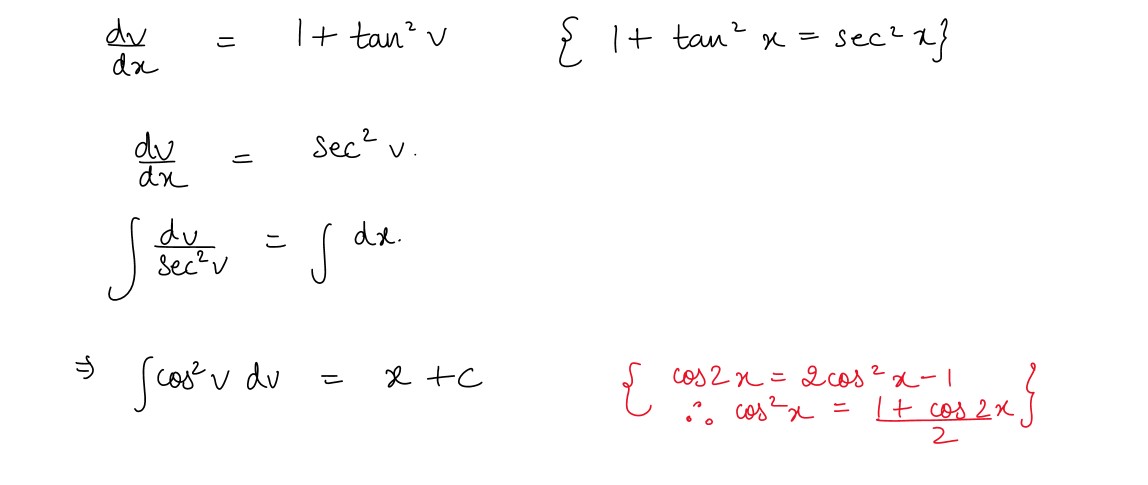 dv/dx = 1 + tan² v { 1 + tan² x = sec² x}
dv/dx = sec² v.
∫ dv/sec² v = ∫ dx.
⇒ ∫ cos² v dv = x + c { cos 2x = 2cos² x - 1
∴ cos² x = (1 + cos 2x)/2 }